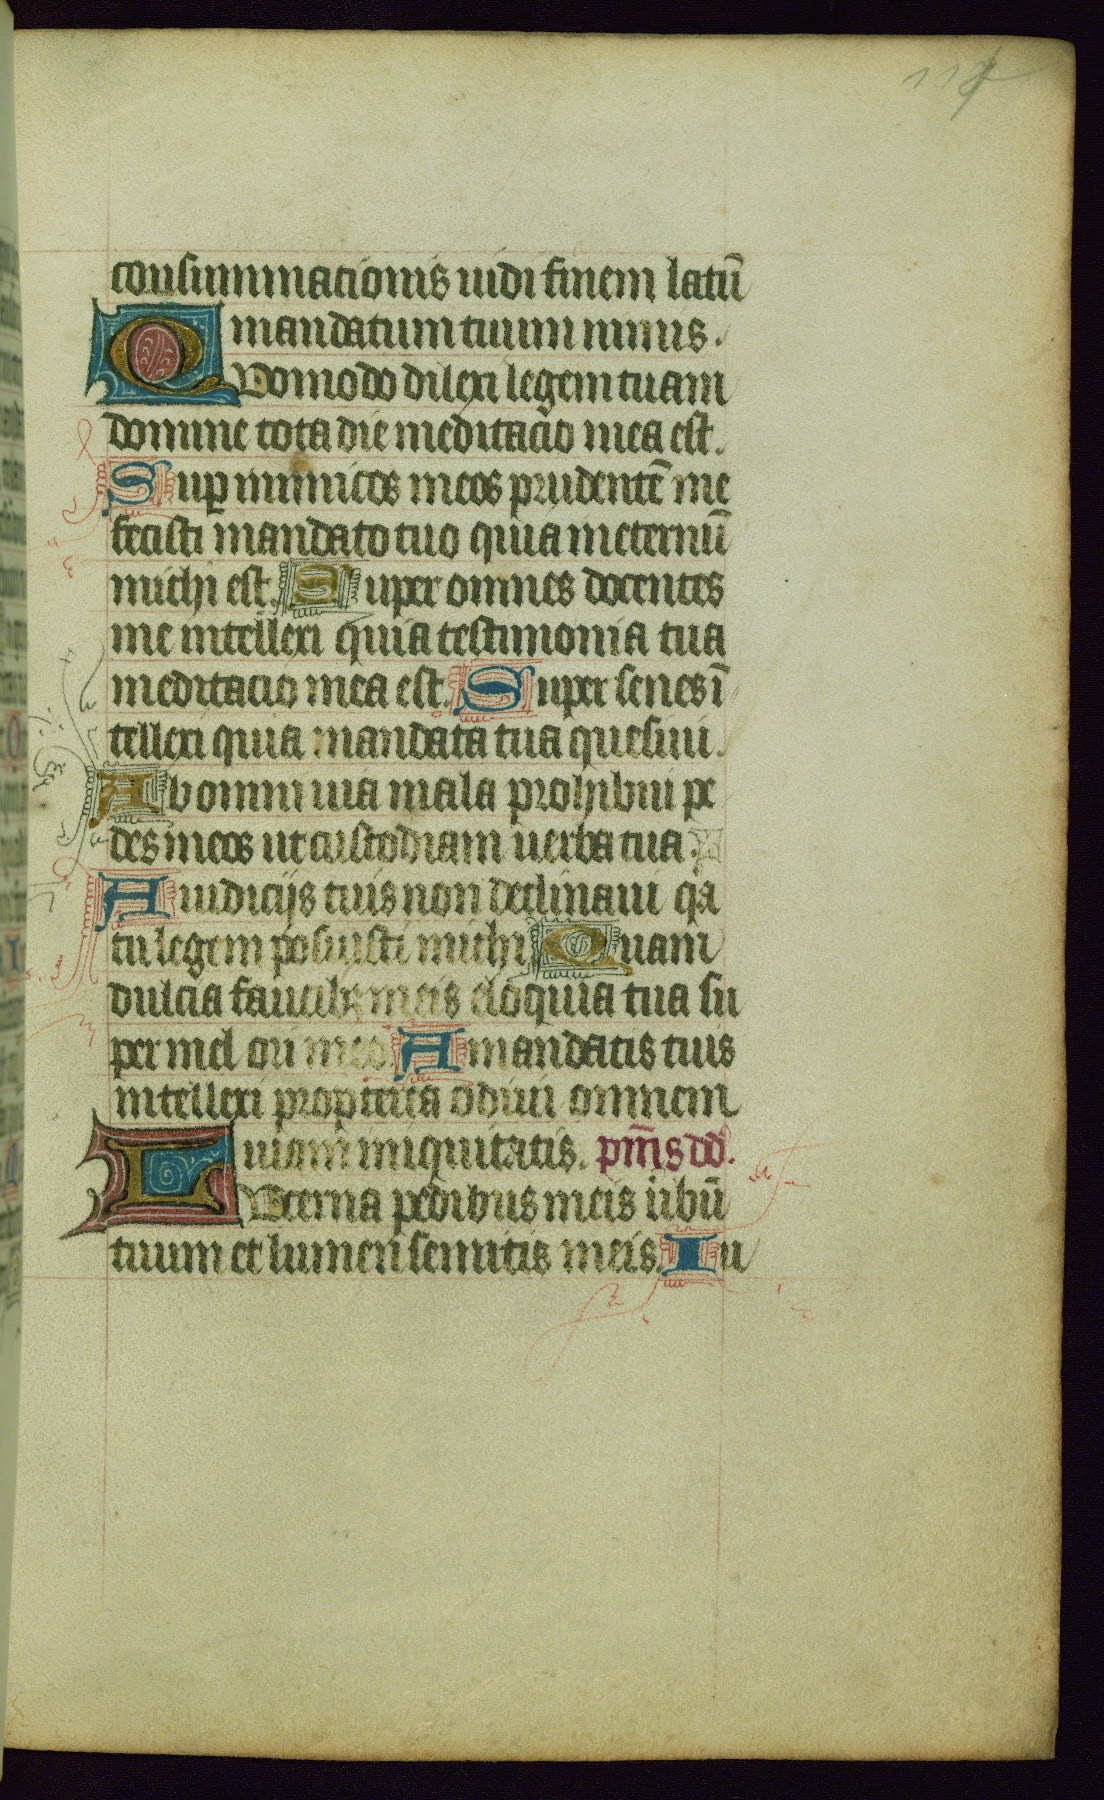 117
consummacionis uidi finem latū
mandatum tuum nimis.
Quomodo dilexi legem tuam
domine tota die meditacio mea est.
Sup inimicos meos prudentē me
fecisti mandato tuo quia ineternū
michi est. Super omnes docentes
me intellexi quia testimonia tua
meditacio mea est. Super senes ī
tellexi quia mandata tua quesiui.
Ab omni uia mala prohibui pe
des meos ut custodiam uerba tua.
A iudicijs tuis non declinaui qa
tu legem posuisti michi Quam
dulcia faucibȝ meis eloquia tua su
per mel ori meo. A mandatis tuis
intellexi propterea odiui omnem
uiam iniquitatis. pm̄s dd.
Lucerna pedibus meis ūbū
tuum et lumen semitis meis. Iu